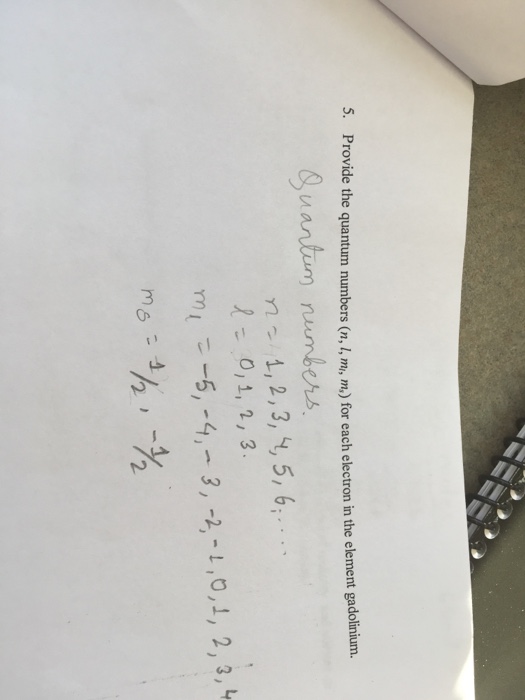 5. Provide the quantum numbers (n, l, mₗ, mₛ) for each electron in the element gadolinium.
Quantum numbers.
n = 1, 2, 3, 4, 5, 6, ....
l = 0, 1, 2, 3.
mₗ = -5, -4, -3, -2, -1, 0, 1, 2, 3, 4
mₛ = 1/2, -1/2